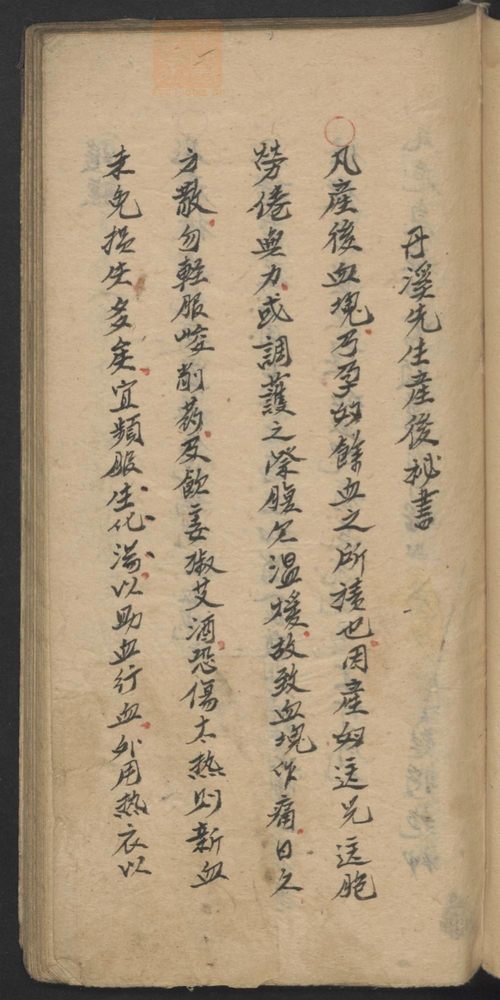 丹溪先生產後秘書
凡產後血塊乃孕婦餘血之所積也因產婦送兒送胞
勞倦無力或調護之際腹欠溫煖故致血塊作痛日久
方散勿輕服峻削药及飲姜椒艾酒恐傷太热則新血
未免損失多矣宜頻服生化湯以助血行血外用热衣以